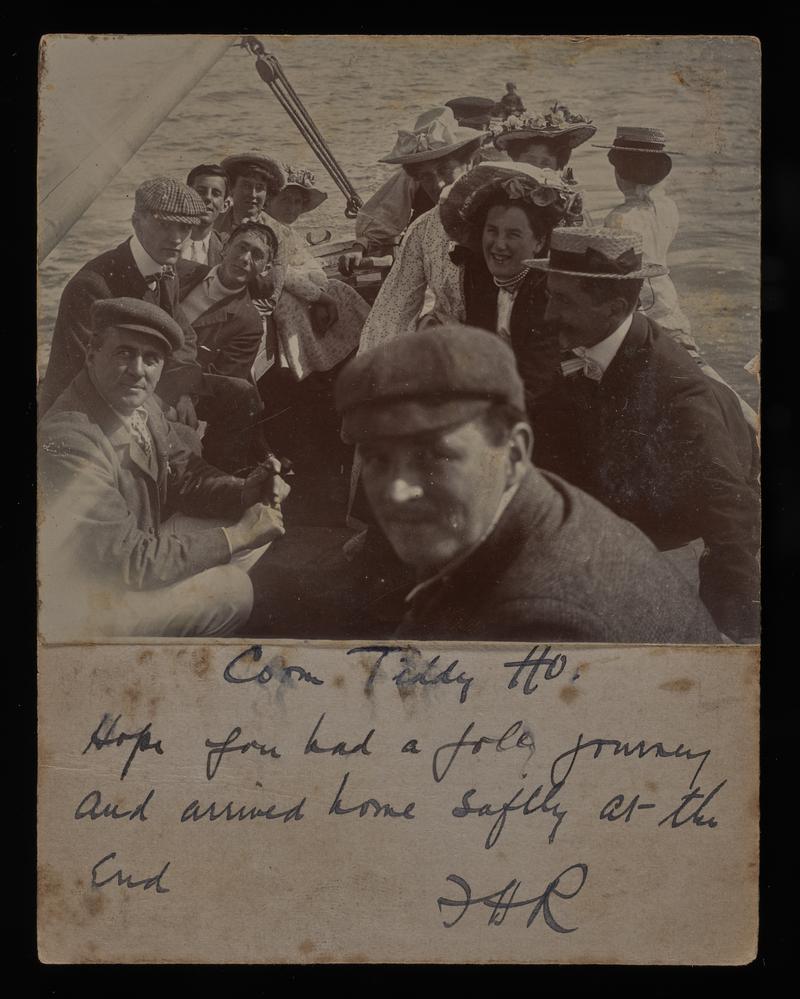 Coom Tiddy Ho.
Hope you had a jolly journey
and arrived home saftly at the
End
FHR